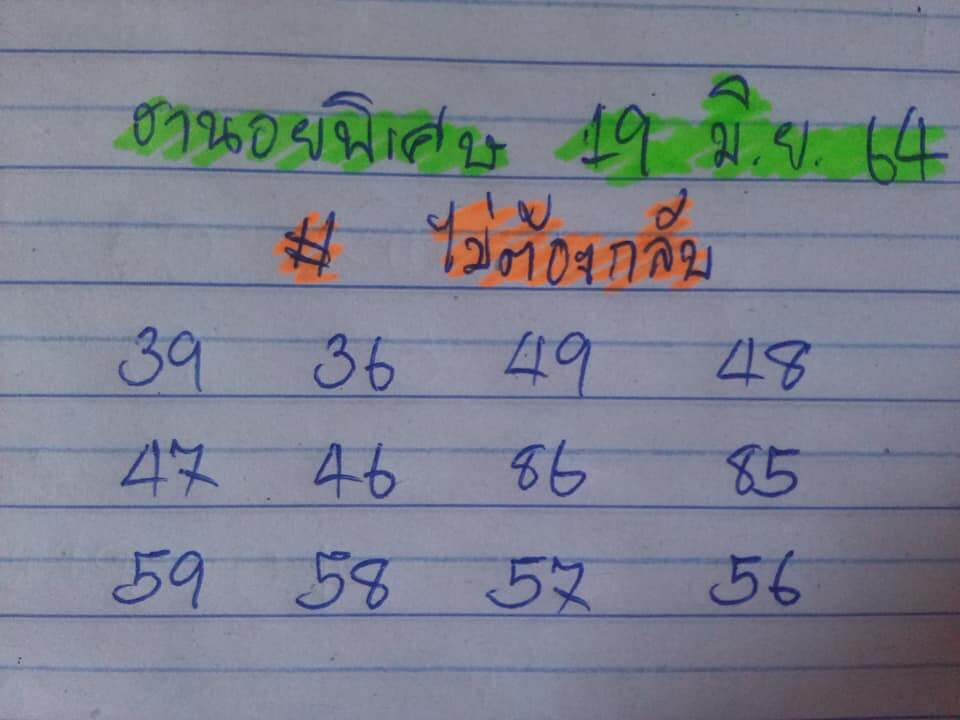 ฮานอยพิเศษ 19 มิ.ย. 64
# ไม่ต้องกลับ
39 36 49 48
47 46 86 85
59 58 57 56